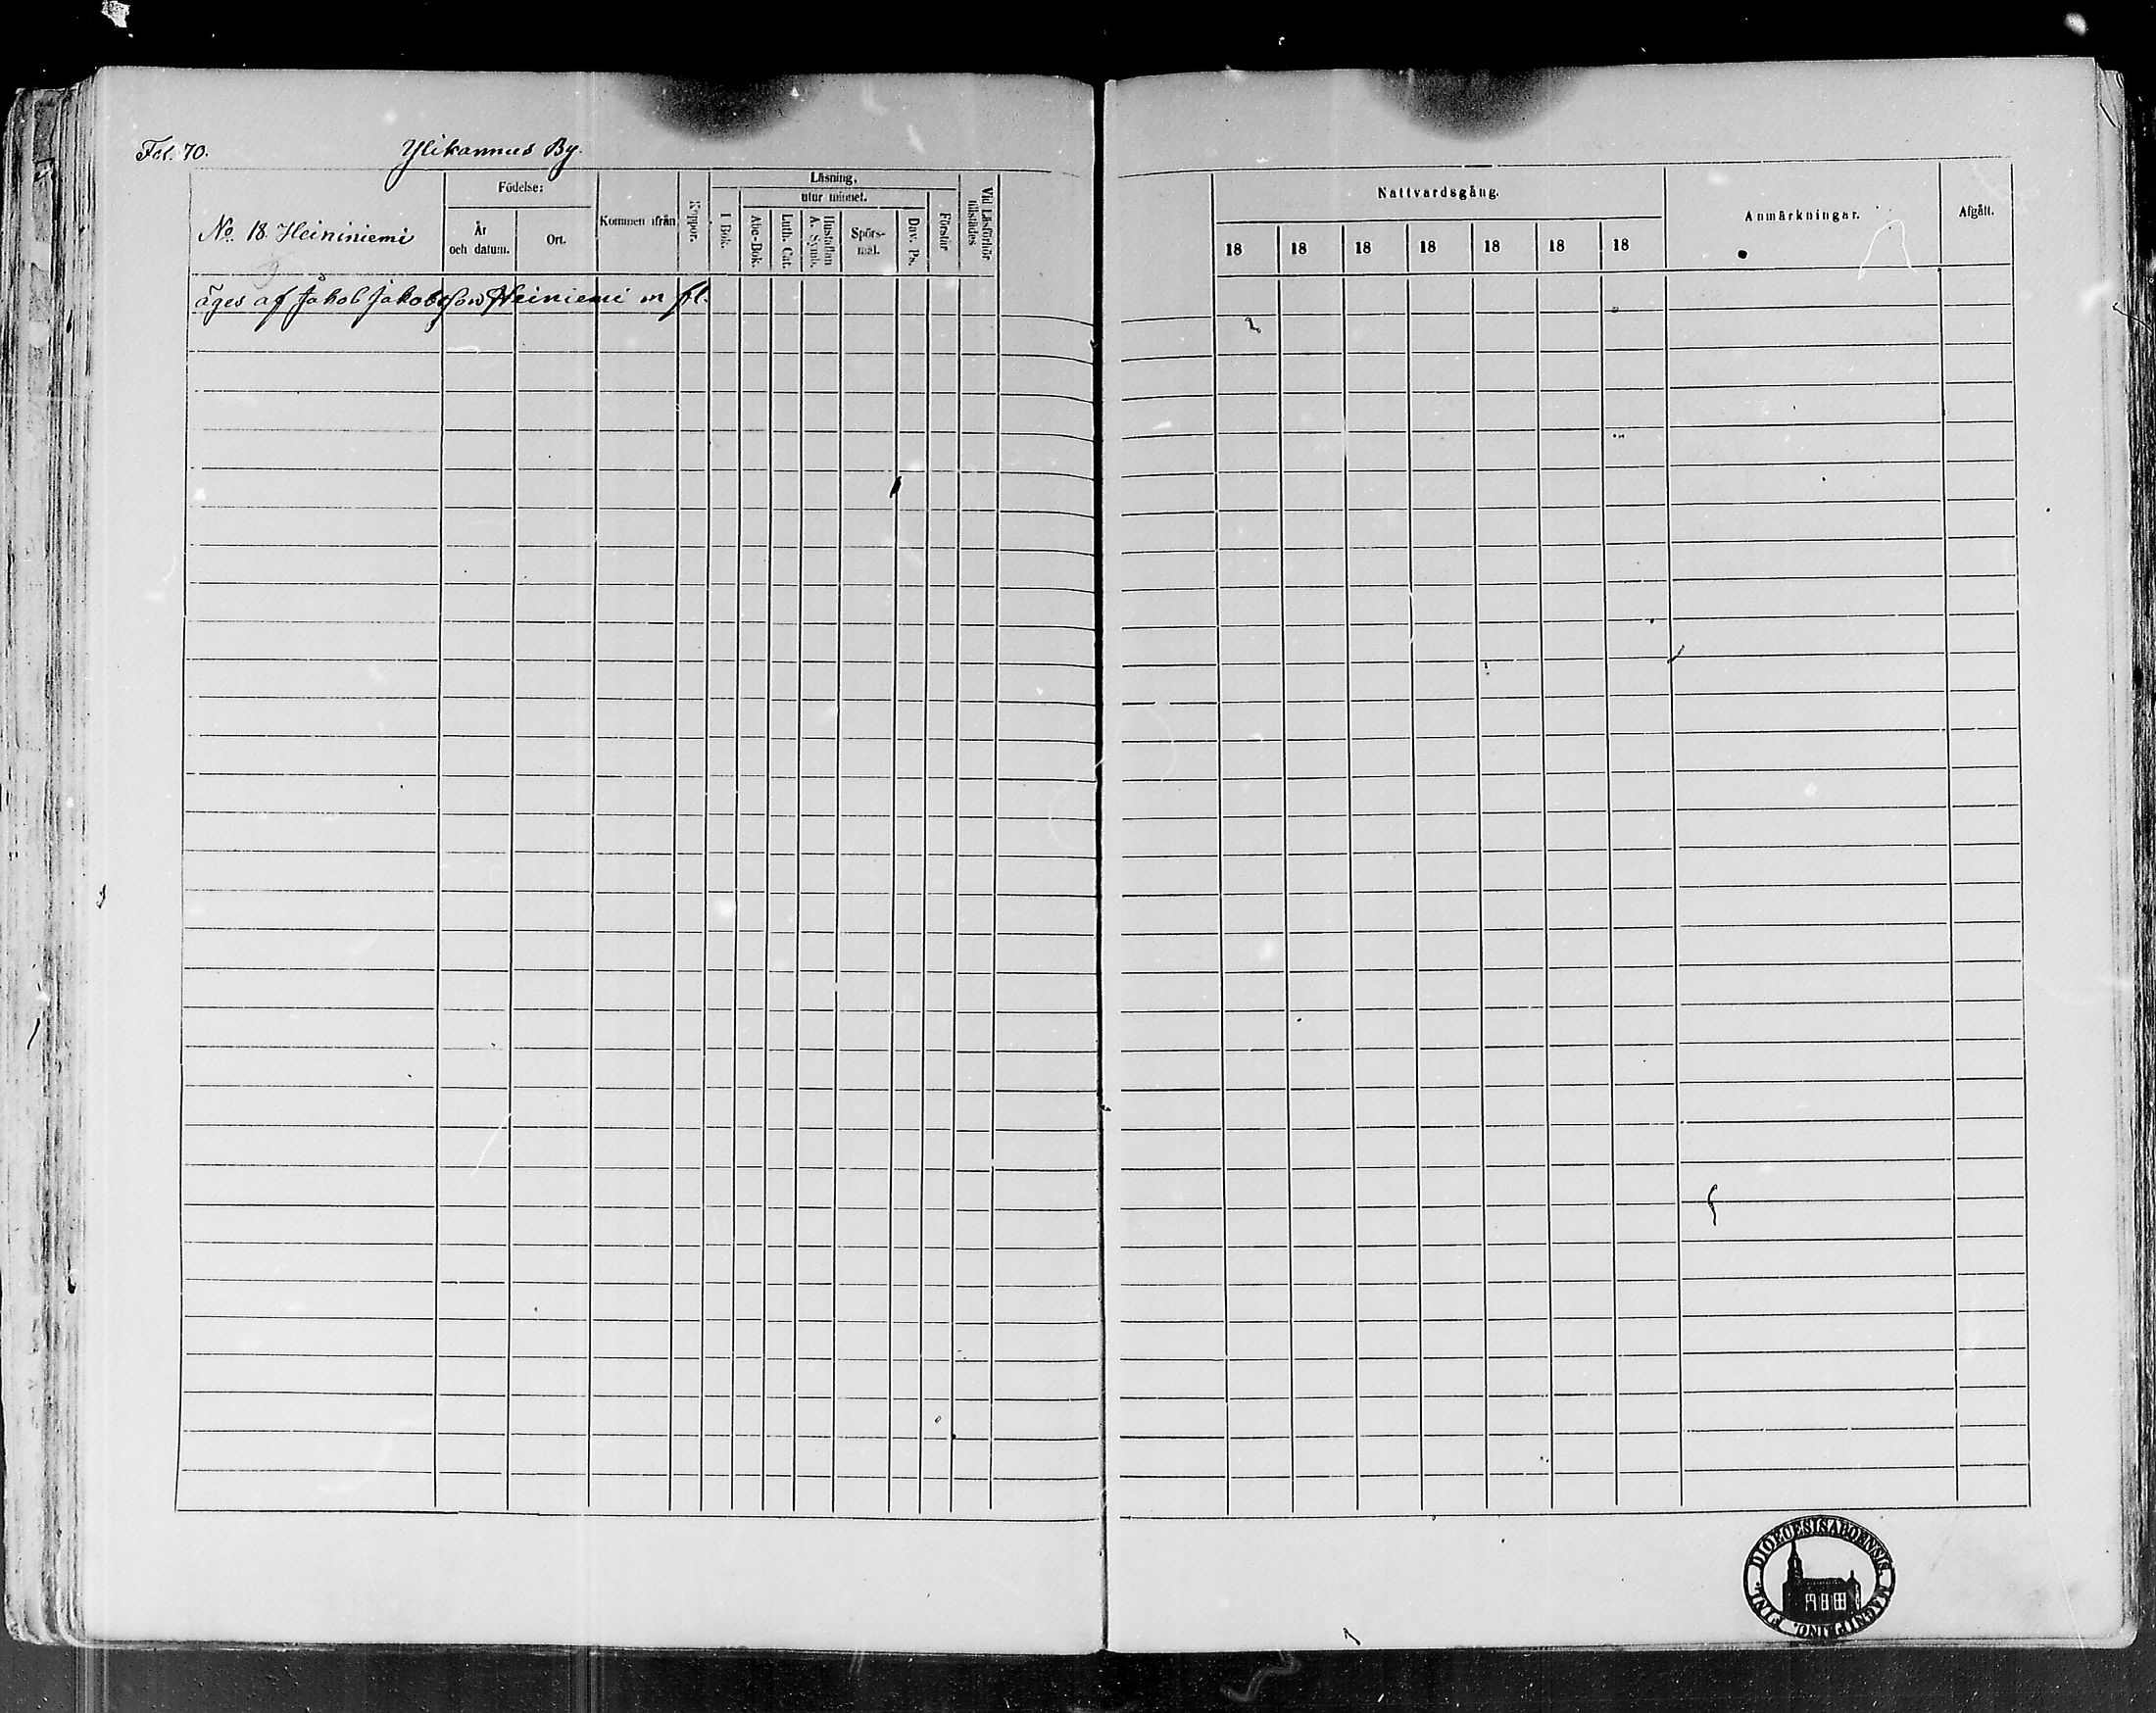 Fol. 70.
Ylikannus By.
No. 18. Heininiemi
Födelse:
År
och datum.
Ort.
Kommen ifrån
Koppor.
Läsning,
utur minnet.
I Bok.
Abc-Bok.
Luth. Cat.
Hustaflan
A. Symb.
Spörs-
mål.
Dav. Ps.
Förstår
Vid Läsförhör
tillstädes
Nattvardsgång.
18 18 18 18 18 18 18
Anmärkningar.
Afgått.
äges af Jakob Jakobsson Heiniemi m fl.
DIOECESIS ABOENSIS MAGNI PRINC. FINL.